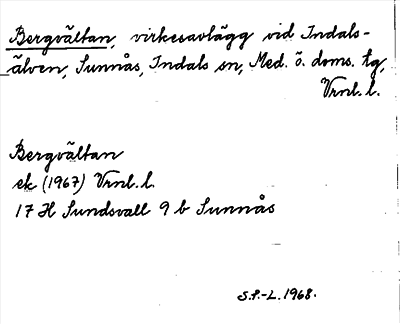 Bergvältan, virkesavlägg vid Indals-
älven, Sunnås, Indals sn, Med. ö. doms. tg,
Vrnl. l.
Bergvältan
ek (1967) Vrnl. l.
17 H Sundsvall 9 b Sunnås
S.P.-L. 1968.